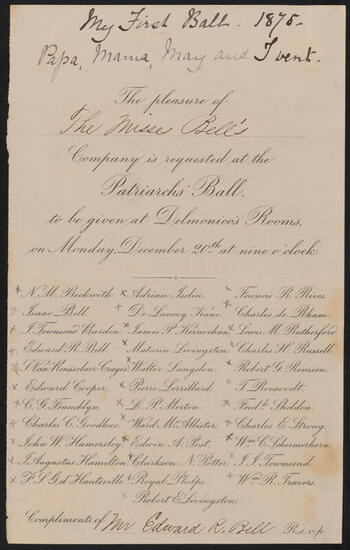 My First Ball - 1875 -
Papa, Mama, May and I went.
The pleasure of
The Misses Bell's
Company is requested at the
Patriarchs' Ball,
to be given at Delmonico's Rooms,
on Monday, December 20th at nine o'clock.
N. M. Beckwith. Adrian Iselin. Francis R. Rives.
Isaac Bell. De Lancey Kane. Charles de Rham.
I. Townsend Burden. James P. Kernochan. Lewis M. Rutherford.
Edward R. Bell. Maturin Livingston. Charles H. Russell.
S. Van Rensselaer Cruger. Walter Langdon. Robert G. Remsen.
Edward Cooper. Pierre Lorrillard. T. Roosevelt.
C. G. Francklyn. L. P. Morton. Fredk. Sheldon.
Charles C. Goodhue. Ward McAllister. Charles E. Strong.
John W. Hamersley. Edwin A. Post. Wm. C. Schermerhorn.
J. Augustus Hamilton. Clarkson N. Potter. J. J. Townsend.
F. S. G. d'Hauteville. Royal Phelps. Wm. R. Travers.
Robert E. Livingston.
Compliments of Mr Edward R. Bell R.s.v.p.